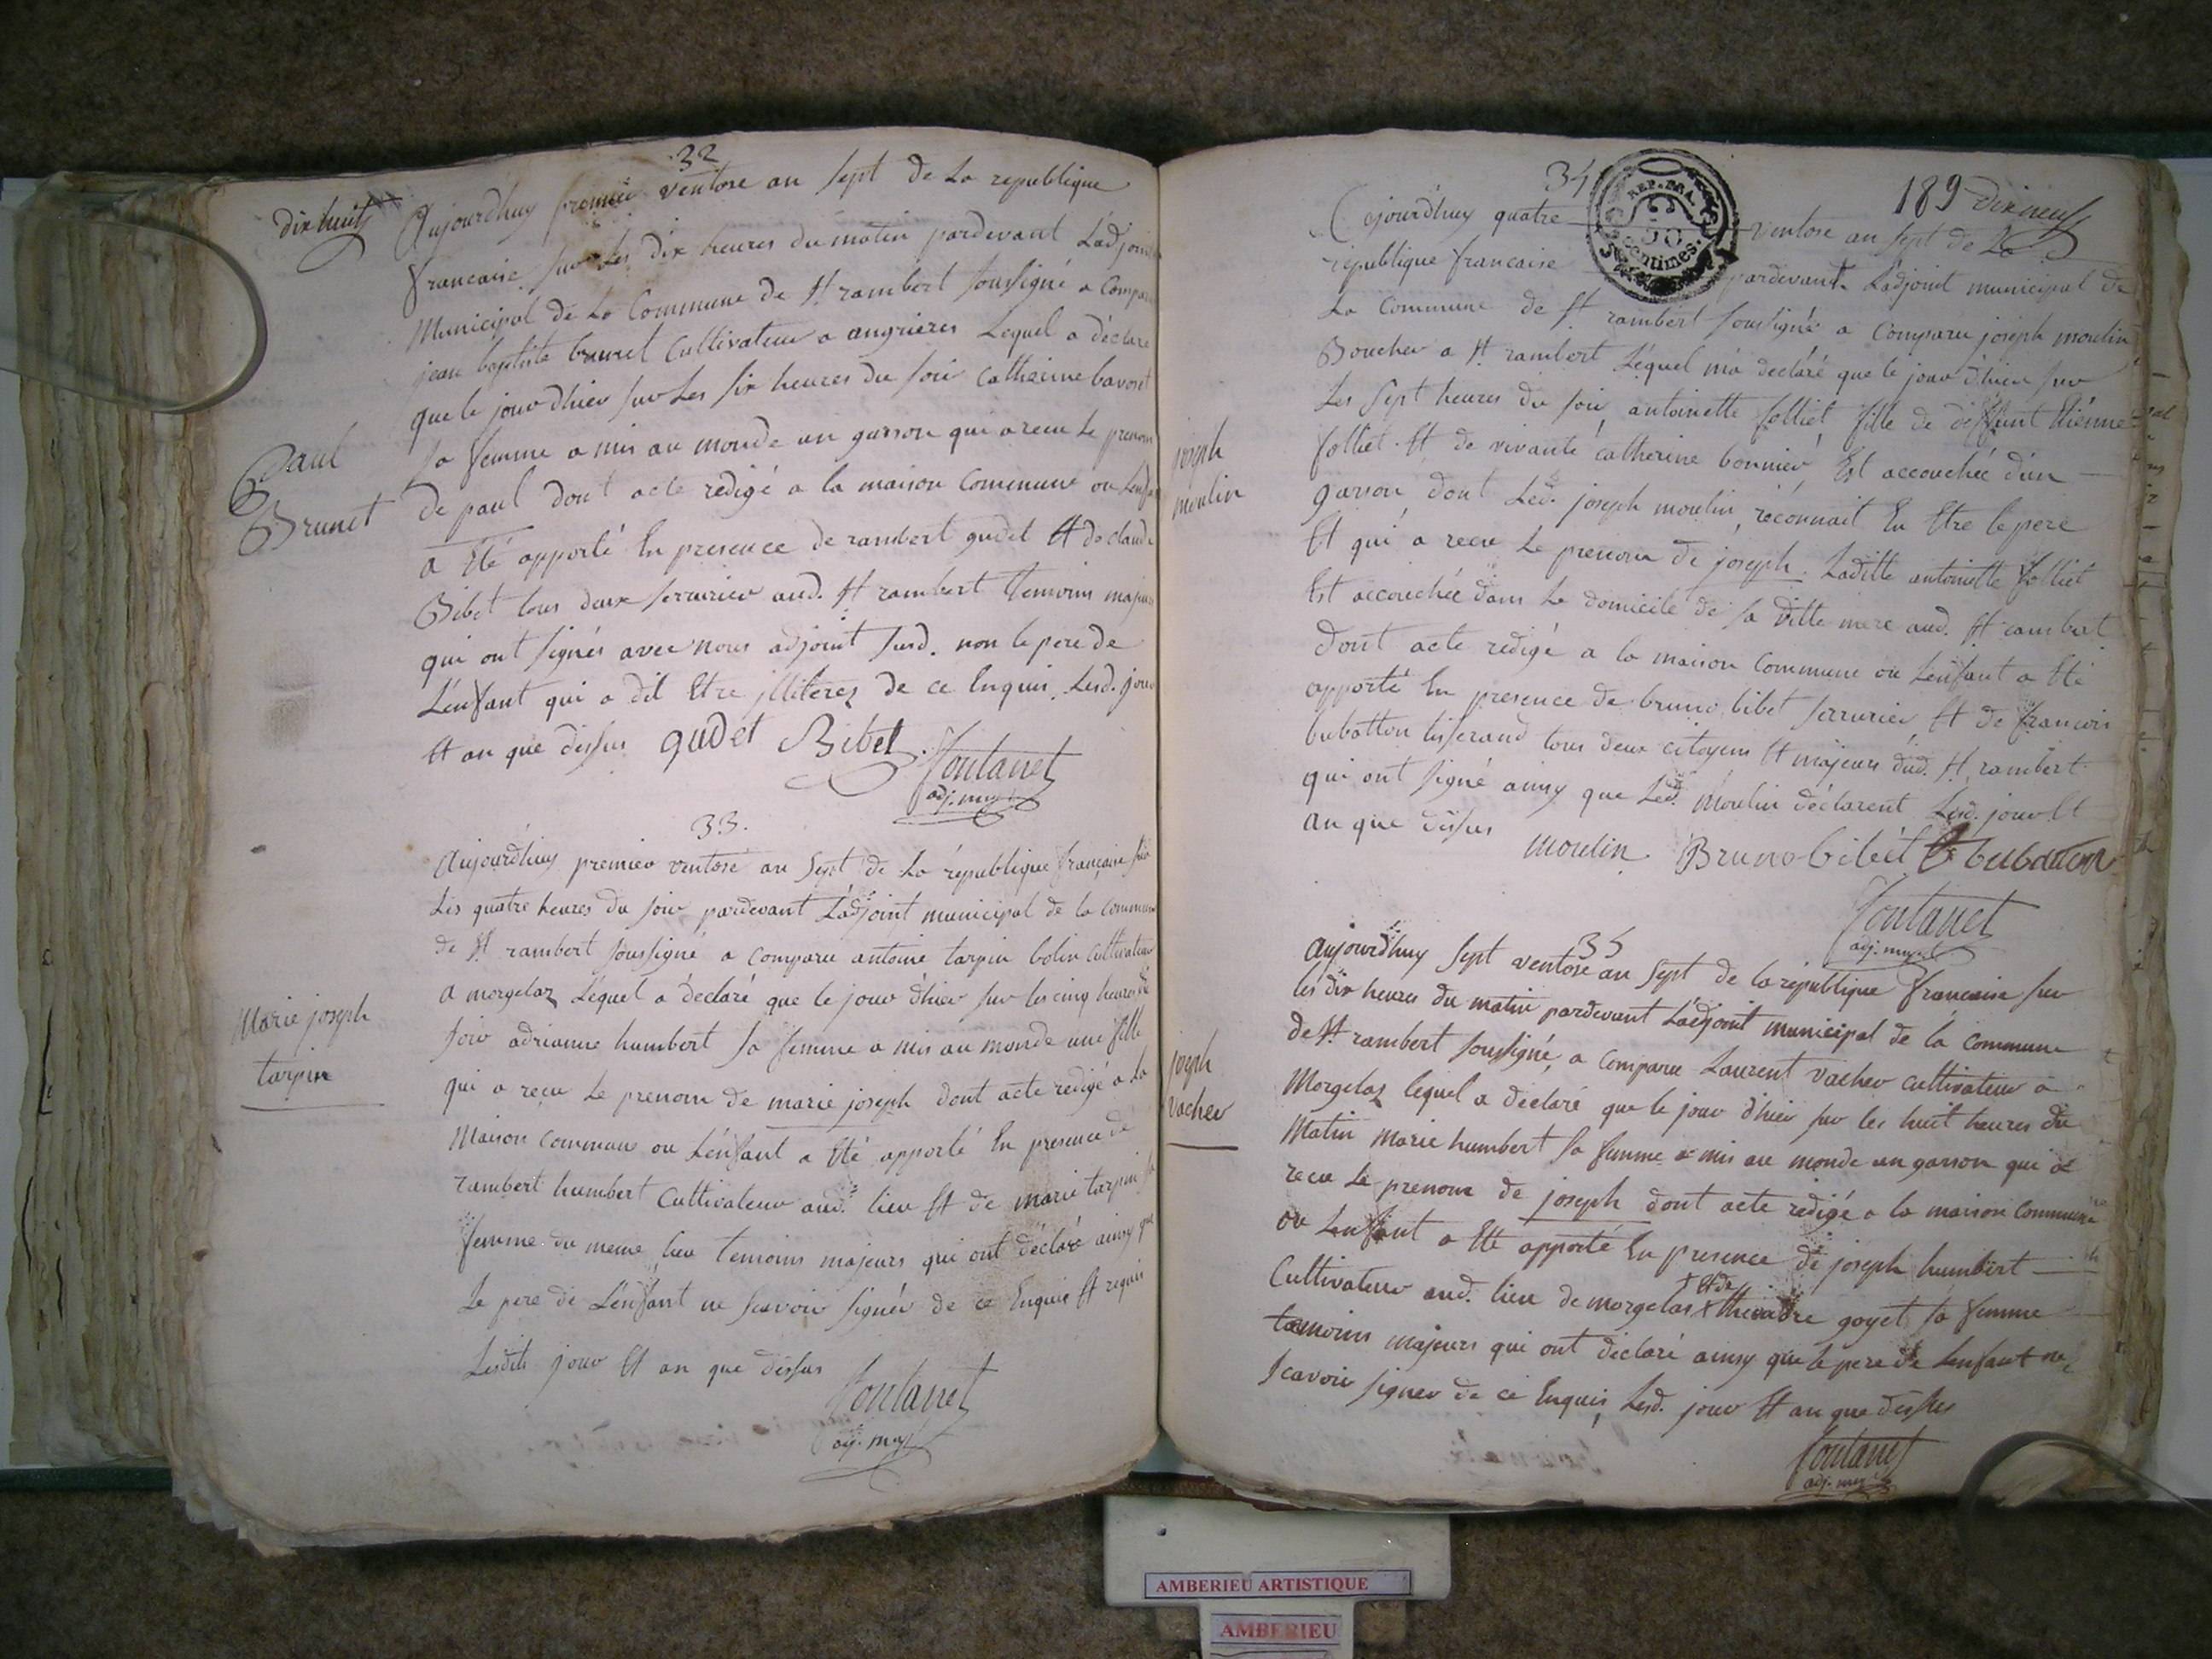 dix huit
32
Aujourdhuy premier ventose an sept de La republique
francaise sur Les dix heures du matin pardevant L'adjoint
Municipal de La Commune de St rambert soussigné a Comparu
jean baptiste brunet Cultivateur a angrieres Lequel a déclaré
que le jour d'hier sur Les six heures du soir Catherine bavoset
sa femme a mis au monde un garson qui a recu Le prenom
de paul dont acte redigé a la maison Commune ou Lenfant
a Eté apporté En presence de rambert gudet Et de claude
Bibet tous deux serrurier aud. St rambert temoins majeurs
qui ont signés avec nous adjoint susd. non le pere de
L'enfant qui a dit Etre illiterez de ce Enquis, Lesd. jour
Et an que dessus gudet Bibet
fontanet
adj. mup.
Paul
Brunet
33.
Aujourd'huy premier ventose an Sept de La république française sur
Les quatre heures du soir pardevant L'adjoint municipal de la commune
de St rambert soussigné a comparu antoine tarpin bolin Cultivateur
a morgelaz Lequel a déclaré que le jour d'hier sur les cinq heures du
soir adrianne humbert sa femme a mis au monde une fille
qui a reçu Le prenom de marie joseph dont acte redigé a La
Maison Commune ou L'enfant a Eté apporté En presence de
rambert humbert Cultivateur aud. lieu Et de marie tarpin sa
femme du meme lieu temoins majeurs qui ont déclaré ainsy que
Le pere de L'enfant ne scavoir signér de ce Enquis Et requis
Lesdits jour Et an que dessus
fontanet
adj. mup.
Marie joseph
tarpin
34
189 dix neuf
REP. FRA.
50
Centimes.
Cejourd'huy quatre ventose an sept de La
république francaise pardevant L'adjoint municipal de
La Commune de St rambert soussigné a Comparu joseph moulin
Boucher a St rambert Léquel m'a declaré que le jour d'hier sur
Les Sept heures du soir, antoinette folliet fille de deffunt Etienne
folliet Et de vivante catherine bonnier, Est accouchée d'un
garson, dont Led. joseph moulin, réconnait En Etre le pere
Et qui a recu Le prenom de joseph. Laditte antoinette folliet
Est accouchée dans Le domicile de sa ditte mere aud. St rambert
dont acte redigé a la maison Commune ou L'enfant a Eté
apporté En presence de bruno bibet serrurier Et de francois
bubatton tisserand tous deux citoyens Et majeurs dud. St rambert
qui ont signé ainsy que Led. moulin déclarent Lesd. jour Et
an que dessus
moulin Bruno bibet bubaton
fontanet
adj. mup.
joseph
moulin
35
Aujourdhuy Sept ventose an Sept de la république francaise sur
les dix heures du matin pardevant L'adjoint municipal de la commune
de St rambert soussigné, a comparu Laurent vacher cultivateur a
Morgelaz lequel a déclaré que le jour d'hier sur les huit heures du
Matin marie humbert sa femme a mis au monde un garson qui a
recu Le prenom de joseph dont acte redigé a la maison Commune
ou Lenfant a Eté apporté En presence de joseph humbert
Cultivateur aud. lieu de morgelas Et de goyet sa femme
temoins majeurs qui ont déclaré ainsy que le pere de Lenfant ne
scavoir signer de ce Enquis, Lesd. jour Et an que dessus
fontanet
adj. mup.
joseph
vacher
AMBERIEU ARTISTIQUE
AMBERIEU